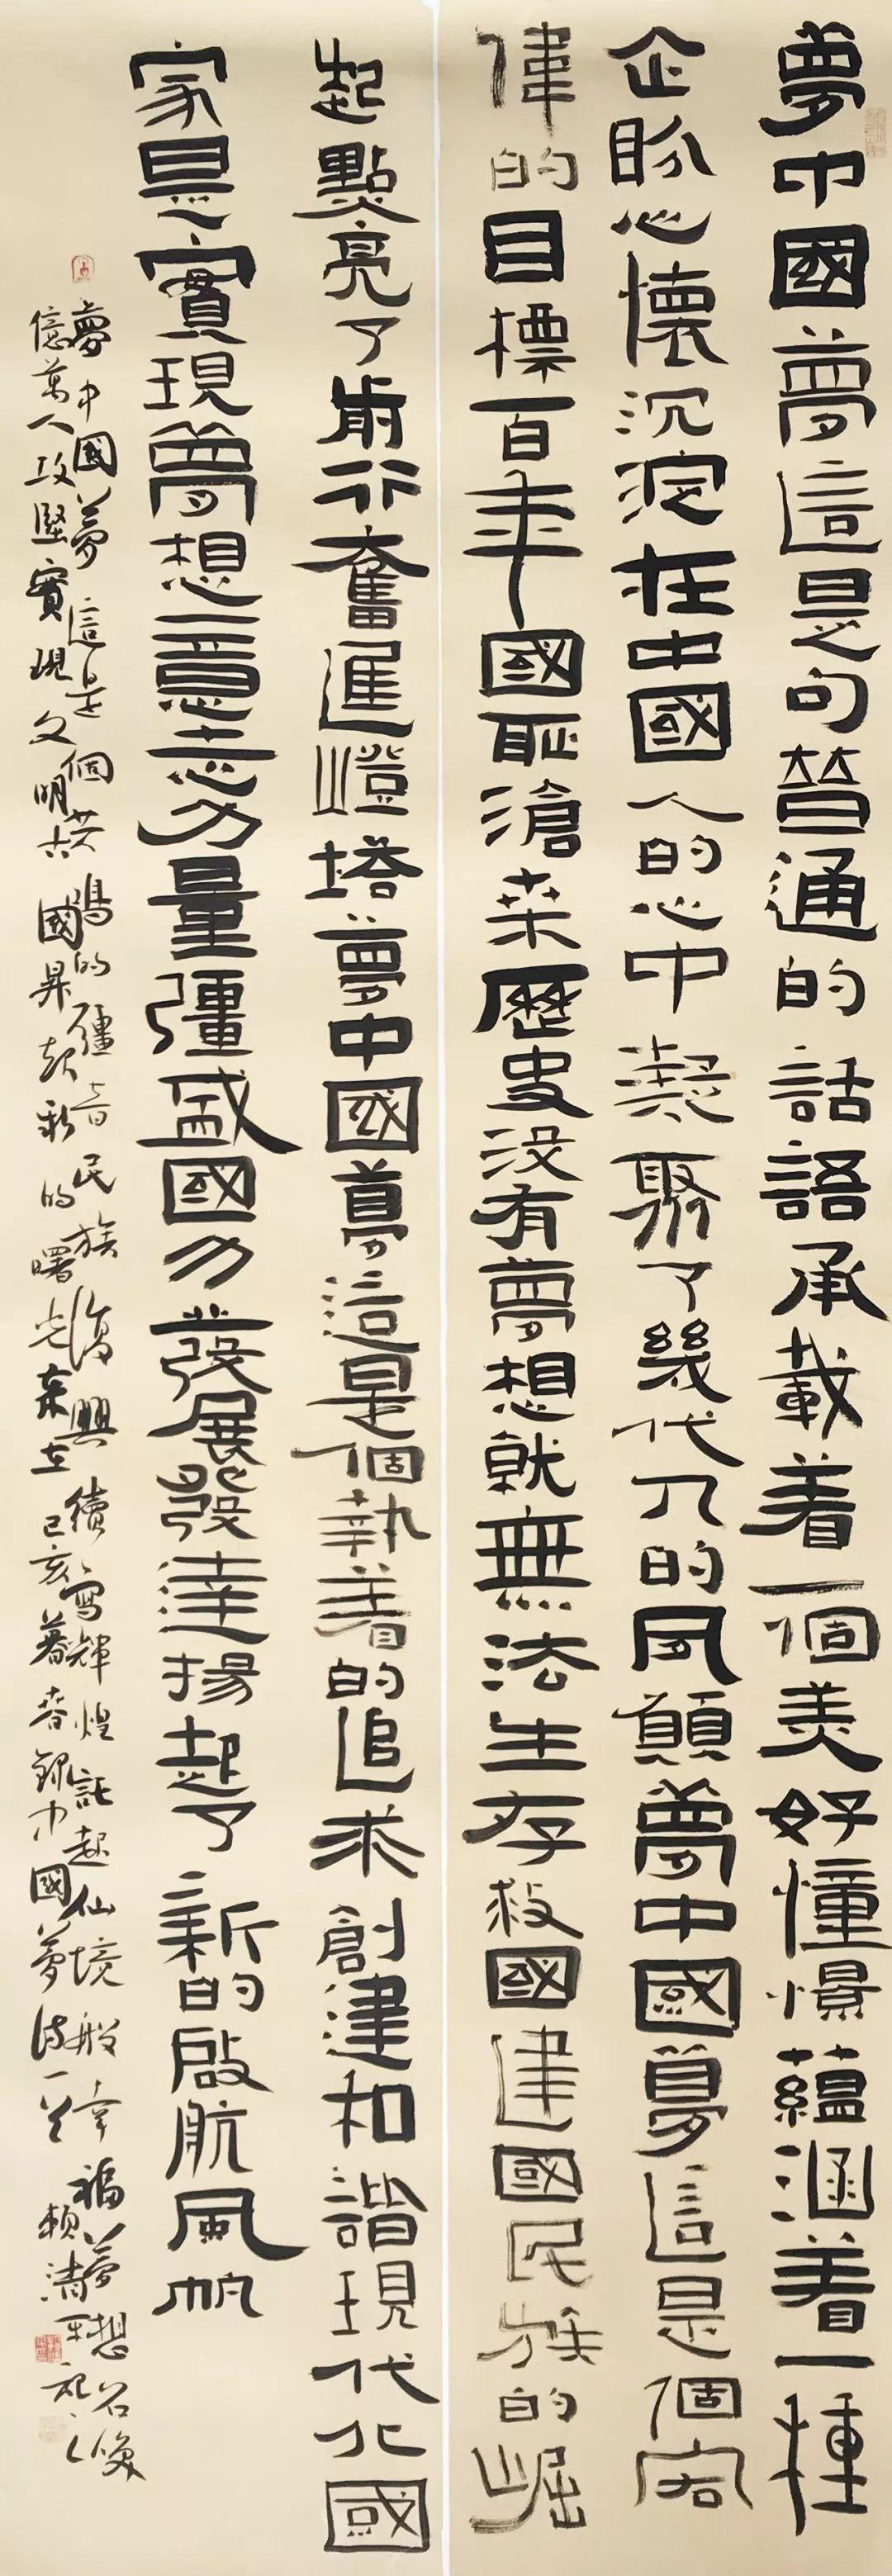 夢中國夢這是句普通的話語承載着一個美好憧憬蘊涵着一種
企盼心懷沉淀在中國人的心中凝聚了幾代人的夙願夢中國夢這是個宏
偉的目標百年國恥滄桑歷史没有夢想就無法生存救國建國民族的崛
起點亮了前行奮進燈塔夢中國夢這是個執着的追求創建和諧現代化國
家是實現夢想意志力量彊盛國力發展發達揚起了新的啟航風帆
夢中國夢這是個共鳴的彊音民族復興續寫輝煌託起仙境般幸福夢想召喚
億萬人攻堅實現文明古國昇起新的曙光東方己亥暮春錄中國夢詩一首賴清平